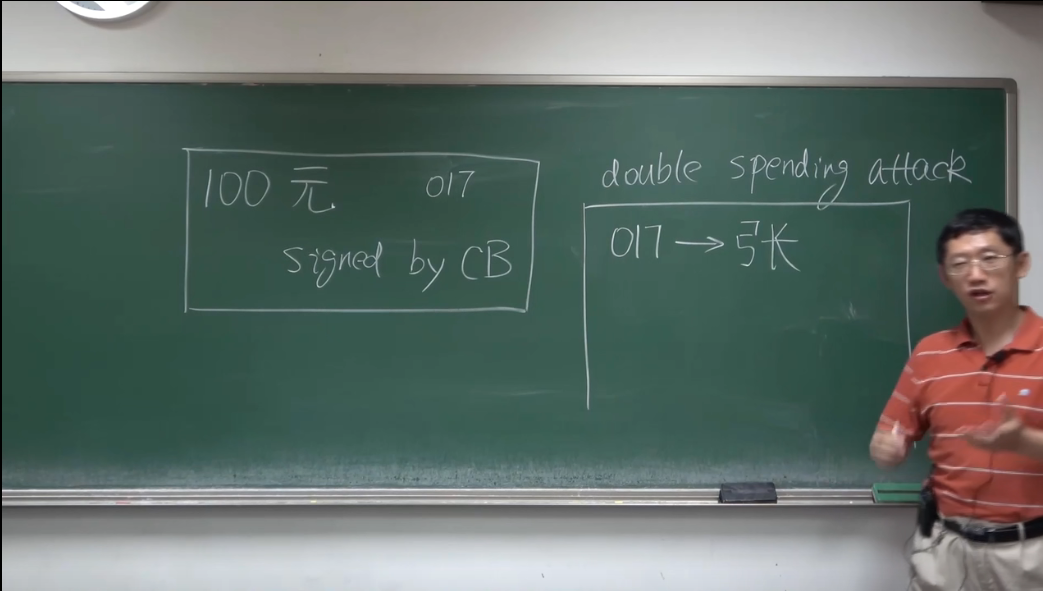 100 元 017
signed by CB
double spending attack
017 → 张